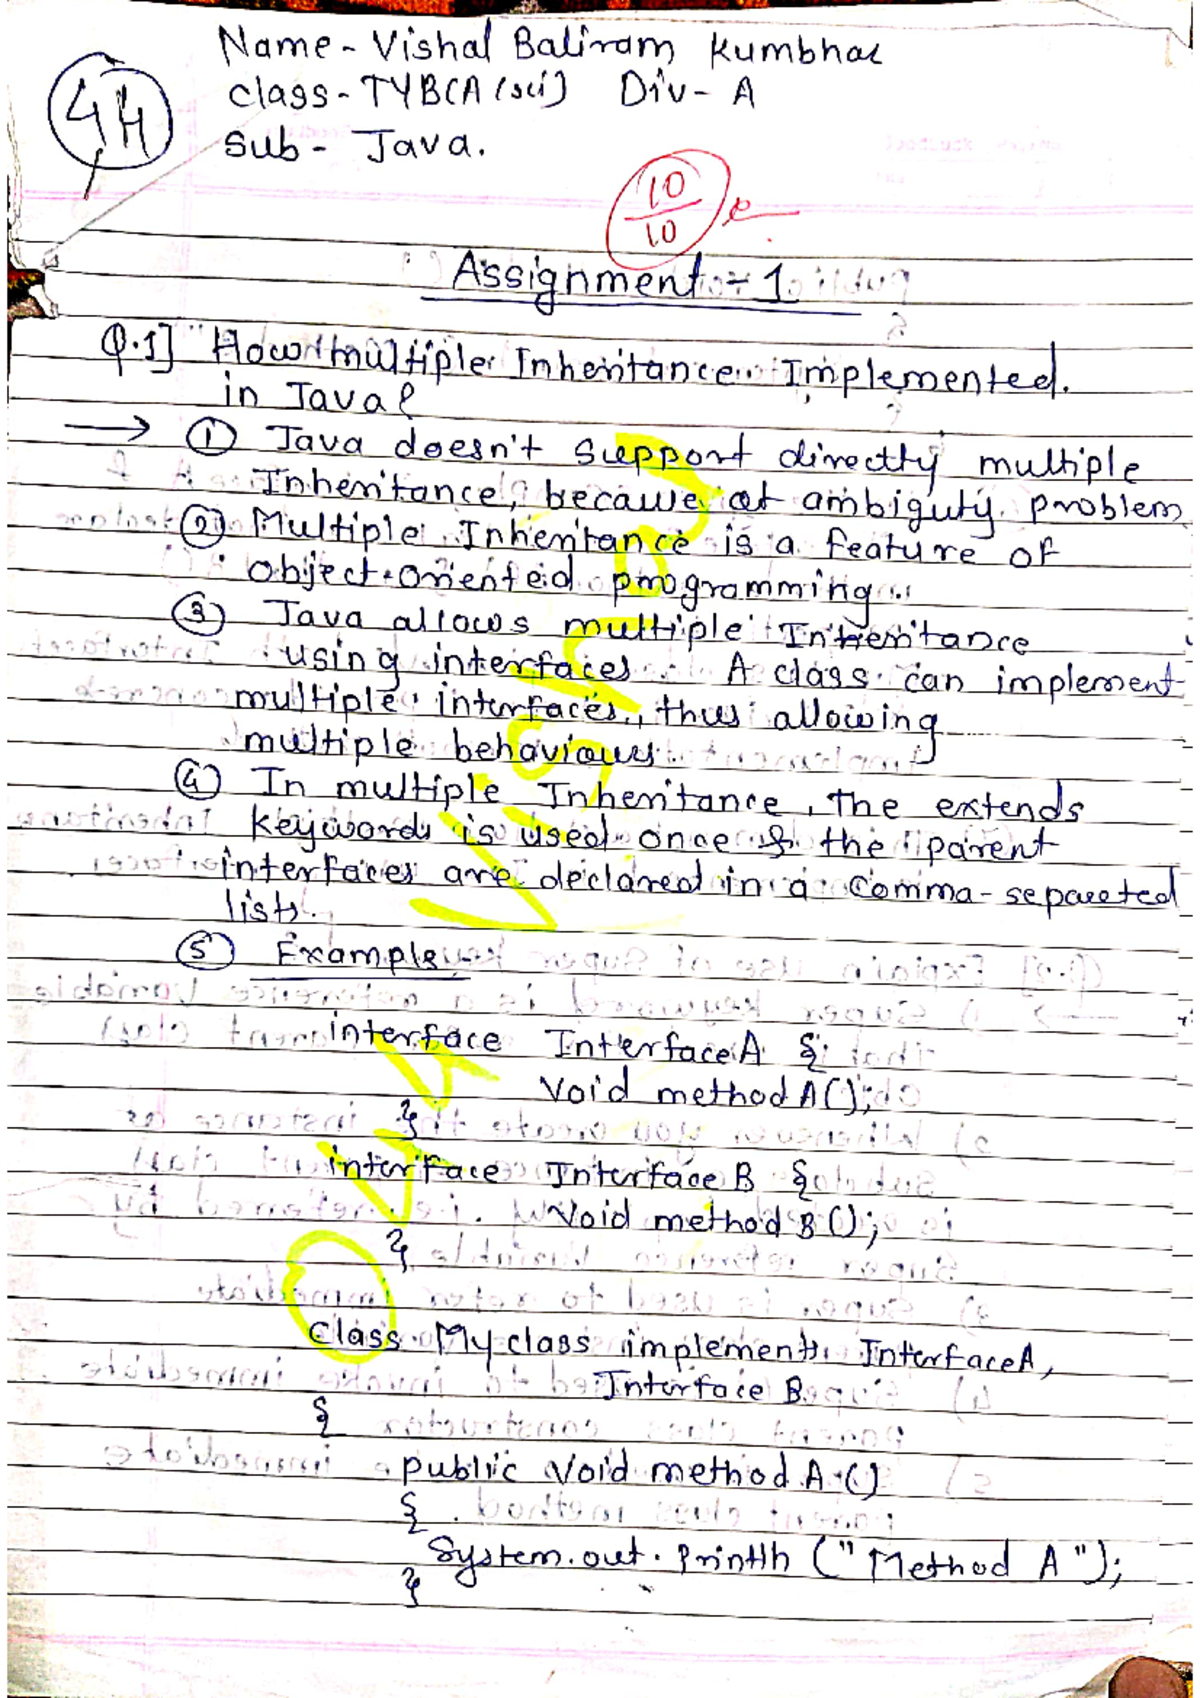 Name - Vishal Baliram Kumbhar
class - TYBCA (sci) Div - A
44
Sub - Java.
10/10
Assignment - 1
Q.1] How multiple Inheritance Implemented.
in Java?
→ ① Java doesn't Support directly multiple
Inheritance, because of ambiguty problem
② Multiple Inheritance is a feature of
object-oriented programming.
③ Java allows multiple Inheritance
using interfaces. A class can implement
multiple interfaces, thus allowing
multiple behaviours.
④ In multiple Inheritance, the extends
keywords is used once & the parent
interfaces are declared in a comma-separeted
lists.
⑤ Example -
interface InterfaceA {
Void method A();
}
interface Interface B {
Void method B ();
}
Class My class implements InterfaceA,
Interface B
{
public Void method A ()
{
System.out.println ("Method A");
}
VISHAL